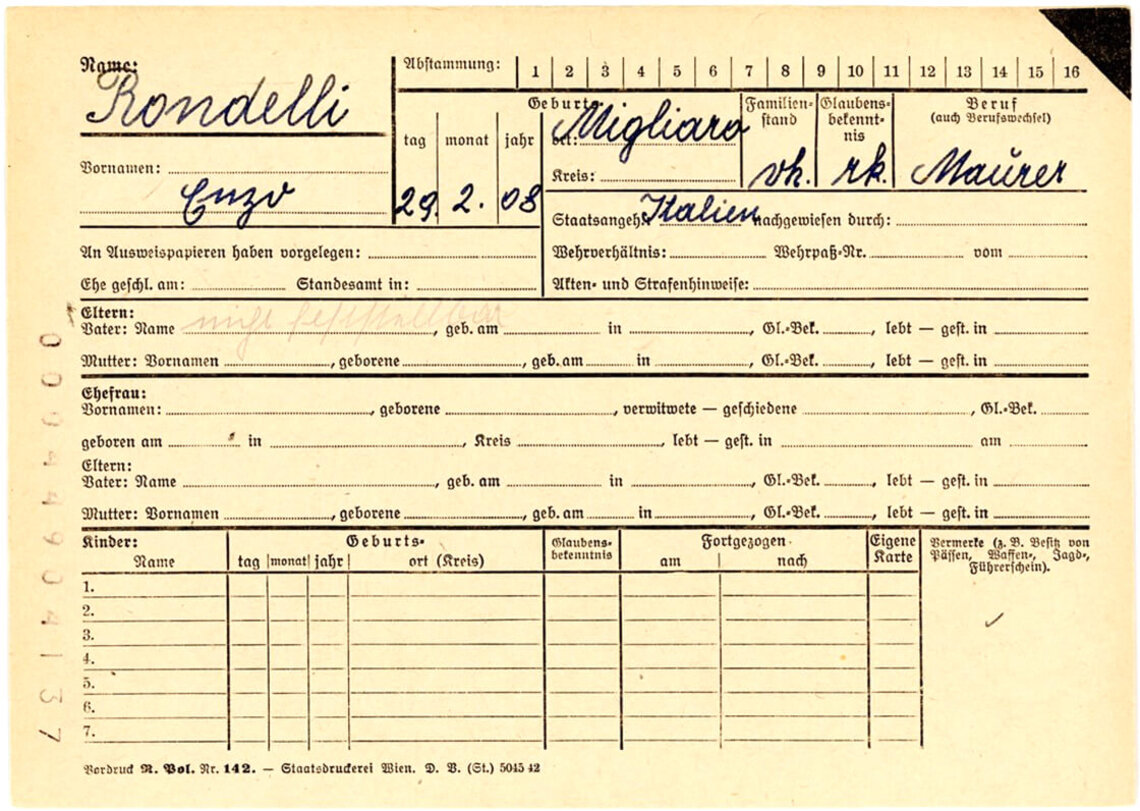 Name: Rondelli
Abstammung: 1 2 3 4 5 6 7 8 9 10 11 12 13 14 15 16
Vornamen: Enzo
Geburts-
tag monat jahr
29. 2. 08
ort: Migliaro
Kreis:
Familien-
stand
vh.
Glaubens-
bekennt-
nis
rk.
Beruf
(auch Berufswechsel)
Maurer
Staatsangeh.: Italien nachgewiesen durch:
An Ausweispapieren haben vorgelegen:
Wehrverhältnis: Wehrpaß-Nr. vom
Ehe geschl. am: Standesamt in:
Akten- und Strafenhinweise:
Eltern:
Vater: Name nicht feststellbar, geb. am in , Gl.-Bek. , lebt — gest. in
Mutter: Vornamen , geborene , geb. am in , Gl.-Bek. , lebt — gest. in
Ehefrau:
Vornamen: , geborene , verwitwete — geschiedene , Gl.-Bek.
geboren am in , Kreis , lebt — gest. in am
Eltern:
Vater: Name , geb. am in , Gl.-Bek. , lebt — gest. in
Mutter: Vornamen , geborene , geb. am in , Gl.-Bek. , lebt — gest. in
Kinder: Geburts- Glaubens- Fortgezogen Eigene Vermerke (z. B. Besitz von
Name tag monat jahr ort (Kreis) bekenntnis am nach Karte Pässen, Waffen-, Jagd-,
Führerschein).
1.
2.
3.
4.
5.
6.
7.
Vordruck R. Pol. Nr. 142. — Staatsdruckerei Wien. D. B. (St.) 5045 42
00044904137